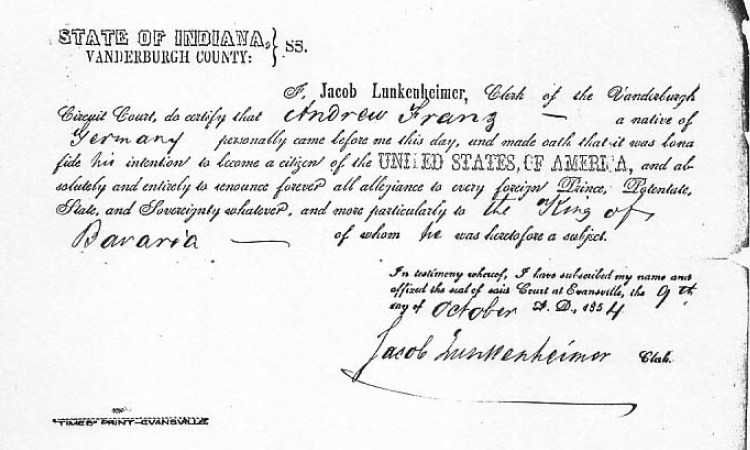 STATE OF INDIANA, } SS.
VANDERBURGH COUNTY:
I, Jacob Lunkenheimer, Clerk of the Vanderburgh
Circuit Court, do certify that Andrew Franz — a native of
Germany personally came before me this day, and made oath that it was bona
fide his intention to become a citizen of the UNITED STATES, OF AMERICA, and ab-
solutely and entirely to renounce forever all allegiance to every foreign Prince, Potentate,
State, and Sovereignty whatever, and more particularly to the King of
Bavaria — of whom he was heretofore a subject.
In testimony whereof, I have subscribed my name and
affixed the seal of said Court at Evansville, the 9th
day of October A. D., 1854
Jacob Lunkenheimer Clerk.
"TIMES" PRINT—EVANSVILLE.